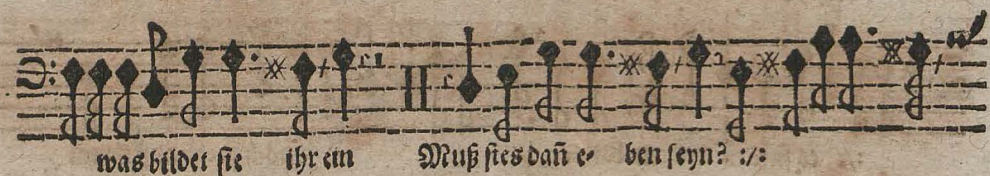 was bildet sie ihr ein Muß sies dañ e- ben seyn? :/: